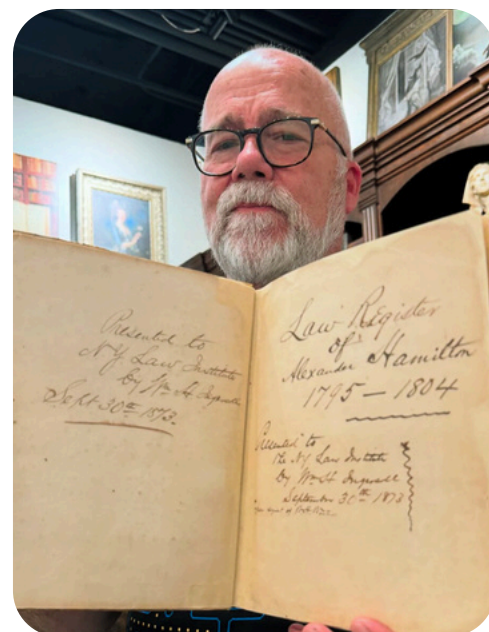 Presented to
N.Y. Law Institute
by Wm H
Sept 30th 1873.
Law Register
of
Alexander Hamilton
1795 — 1804
Presented to
the N.Y. Law Institute
By Wm H
September 30th 1873